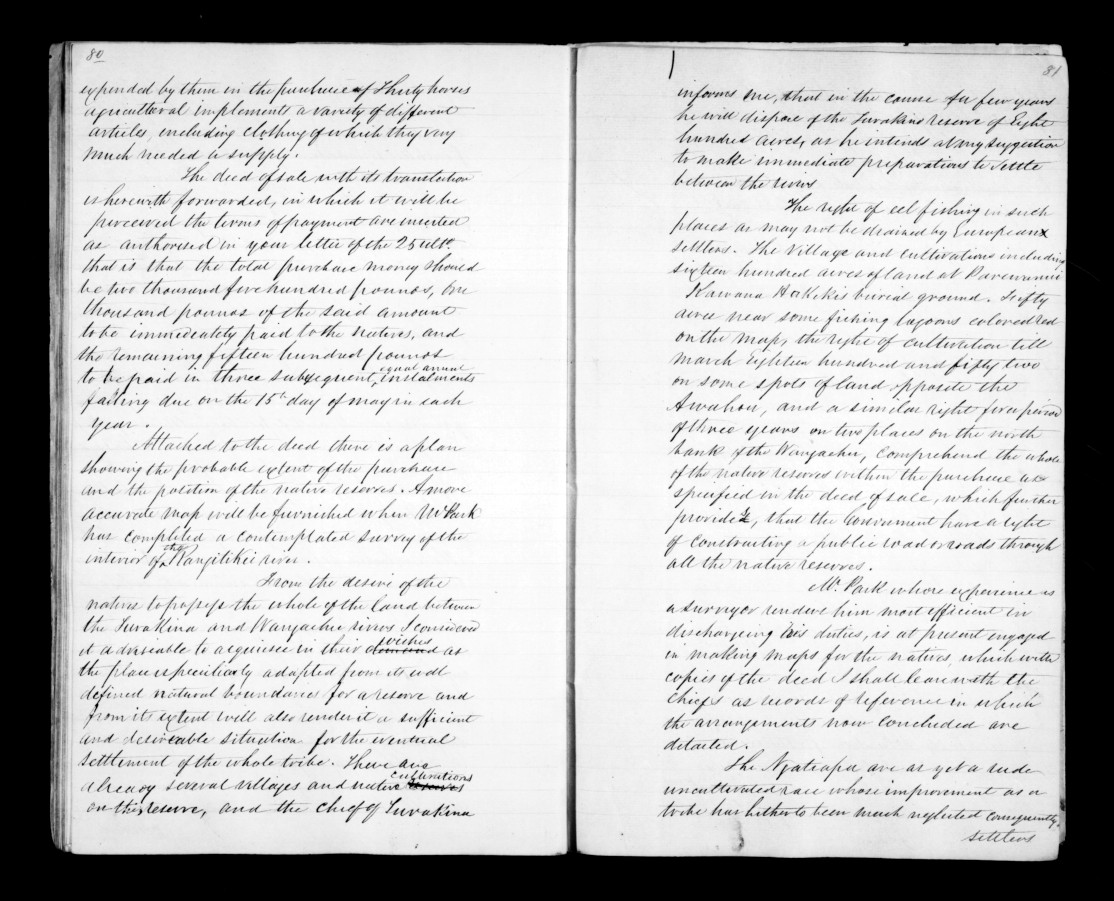 80
expended by them in the purchase of Thirty horses
agricultural implements a variety of different
articles, including clothing of which they very
much needed a supply.
The deed of sale with its translation
is herewith forwarded, in which it will be
perceived the terms of payment are inserted
as authorised in your letter of the 25 ulto.
that is that the total purchase money should
be two thousand five hundred pounds, One
thousand pounds of the said amount
to be immediately paid to the natives, and
the remaining fifteen hundred pounds
to be paid in three subsequent equal annual instalments
falling due on the 15th day of may in each
year.
Attached to the deed there is a plan
showing the probable extent of the purchase
and the position of the native reserves. A more
accurate map will be furnished when Mr Park
has completed a contemplated survey of the
interior of the Rangitikei river.
From the desire of the
natives to possess the whole of the land between
the Turakina and Wangaehu rivers I considered
it adviseable to acquiesce in their demand wishes as
the place is peculiarly adapted from its well
defined natural boundaries for a reserve and
from its extent will also render it a sufficient
and desireable situation for the eventual
settlement of the whole tribe. There are
already several villages and native reserves cultivations
on this reserve, and the chief of Turakina
81
informs me, that in the course of a few years
he will dispose of the Turakina reserve of Eight
hundred acres, as he intends at my suggestion
to make immediate preparations to settle
between the rivers
The right of eel fishing in such
places as may not be drained by European
settlers. The Village and cultivations including
sixteen hundred acres of land at Parewanui
Kawana Hakeke's burial ground. Fifty
acres near some fishing lagoons colored red
on the map, the right of cultivation till
March Eighteen hundred and fifty two
on some spots of land opposite the
Awahou, and a similar right for a period
of three years on two places on the north
bank of the Wangaehu, Comprehend the whole
of the native reserves within the purchase as
specified in the deed of sale, which further
provides, that the Government have a right
of constructing a public road or roads through
all the native reserves.
Mr. Park whose experience as
a surveyor renders him most efficient in
discharging his duties, is at present engaged
in making maps for the natives, which with
copies of the deed I shall leave with the
Chiefs as records of reference in which
the arrangements now concluded are
detailed.
The Ngatiapa are as yet a rude
uncultivated race whose improvement as a
tribe has hitherto been much neglected consequently
settlers